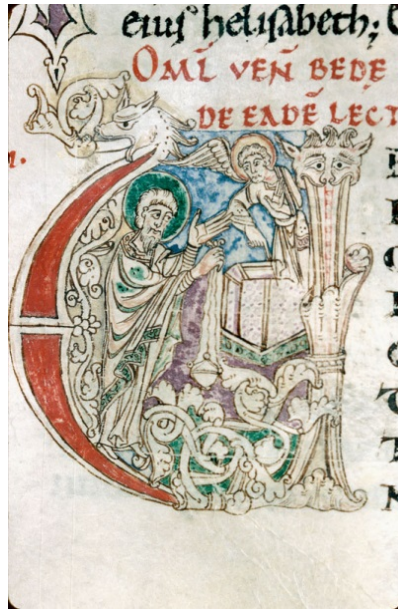 eiuſ heliſabeth;
OMĪ VEÑ BEDE
DE EADĒ LECT